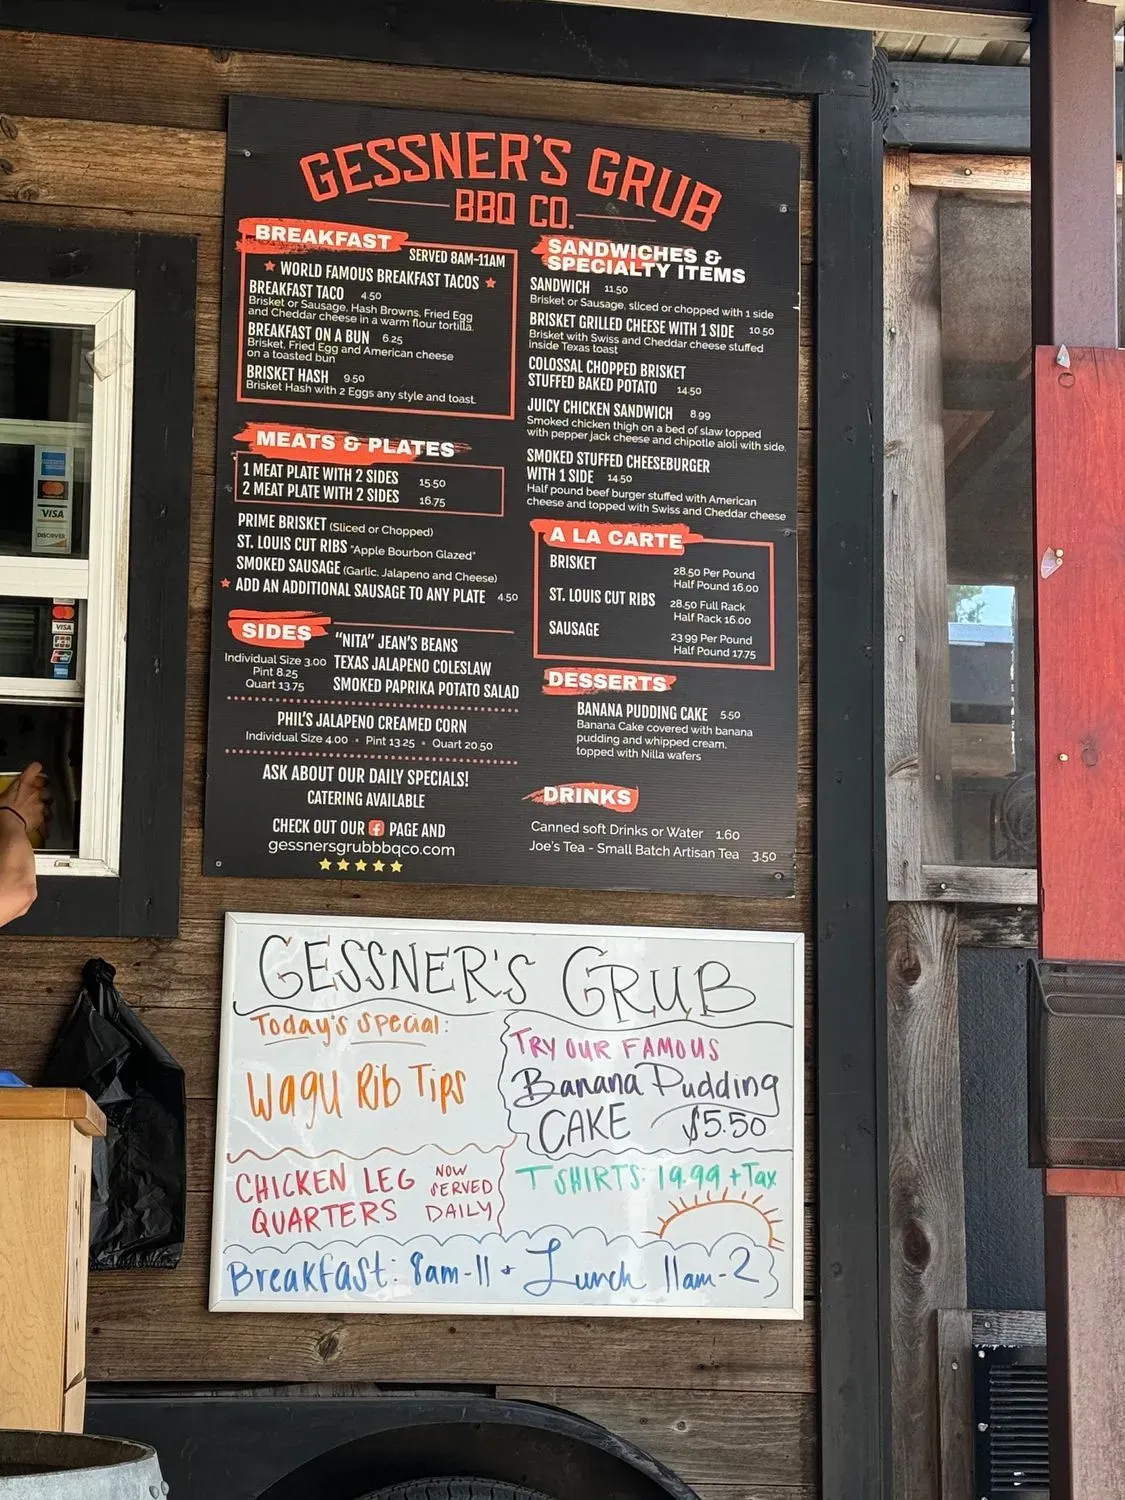 GESSNER'S GRUB
BBQ CO.
BREAKFAST
SERVED 8AM-11AM
WORLD FAMOUS BREAKFAST TACOS
BREAKFAST TACO 4.50
Brisket or Sausage, Hash Browns, Fried Egg
and Cheddar cheese in a warm flour tortilla.
BREAKFAST ON A BUN 6.25
Brisket, Fried Egg and American cheese
on a toasted bun
BRISKET HASH 9.50
Brisket Hash with 2 Eggs any style and toast.
MEATS & PLATES
1 MEAT PLATE WITH 2 SIDES 15.50
2 MEAT PLATE WITH 2 SIDES 16.75
PRIME BRISKET (Sliced or Chopped)
ST. LOUIS CUT RIBS "Apple Bourbon Glazed"
SMOKED SAUSAGE (Garlic, Jalapeno and Cheese)
ADD AN ADDITIONAL SAUSAGE TO ANY PLATE 4.50
SIDES
Individual Size 3.00
Pint 8.25
Quart 13.75
"NITA" JEAN'S BEANS
TEXAS JALAPENO COLESLAW
SMOKED PAPRIKA POTATO SALAD
PHIL'S JALAPENO CREAMED CORN
Individual Size 4.00 • Pint 13.25 • Quart 20.50
ASK ABOUT OUR DAILY SPECIALS!
CATERING AVAILABLE
CHECK OUT OUR f PAGE AND
gessnersgrubbbqco.com
SANDWICHES &
SPECIALTY ITEMS
SANDWICH 11.50
Brisket or Sausage, sliced or chopped with 1 side
BRISKET GRILLED CHEESE WITH 1 SIDE 10.50
Brisket with Swiss and Cheddar cheese stuffed
inside Texas toast
COLOSSAL CHOPPED BRISKET
STUFFED BAKED POTATO 14.50
JUICY CHICKEN SANDWICH 8.99
Smoked chicken thigh on a bed of slaw topped
with pepper jack cheese and chipotle aioli with side.
SMOKED STUFFED CHEESEBURGER
WITH 1 SIDE 14.50
Half pound beef burger stuffed with American
cheese and topped with Swiss and Cheddar cheese
A LA CARTE
BRISKET 28.50 Per Pound
Half Pound 16.00
ST. LOUIS CUT RIBS 28.50 Full Rack
Half Rack 16.00
SAUSAGE 23.99 Per Pound
Half Pound 17.75
DESSERTS
BANANA PUDDING CAKE 5.50
Banana Cake covered with banana
pudding and whipped cream,
topped with Nilla wafers
DRINKS
Canned soft Drinks or Water 1.60
Joe's Tea - Small Batch Artisan Tea 3.50
VISA
DISCOVER
VISA
JCB
GESSNER'S GRUB
Today's Special:
Wagu Rib Tips
TRY OUR FAMOUS
Banana Pudding
CAKE $5.50
CHICKEN LEG
QUARTERS
NOW
SERVED
DAILY
T SHIRTS: 19.99 + Tax
Breakfast: 8am-11 + Lunch 11am-2